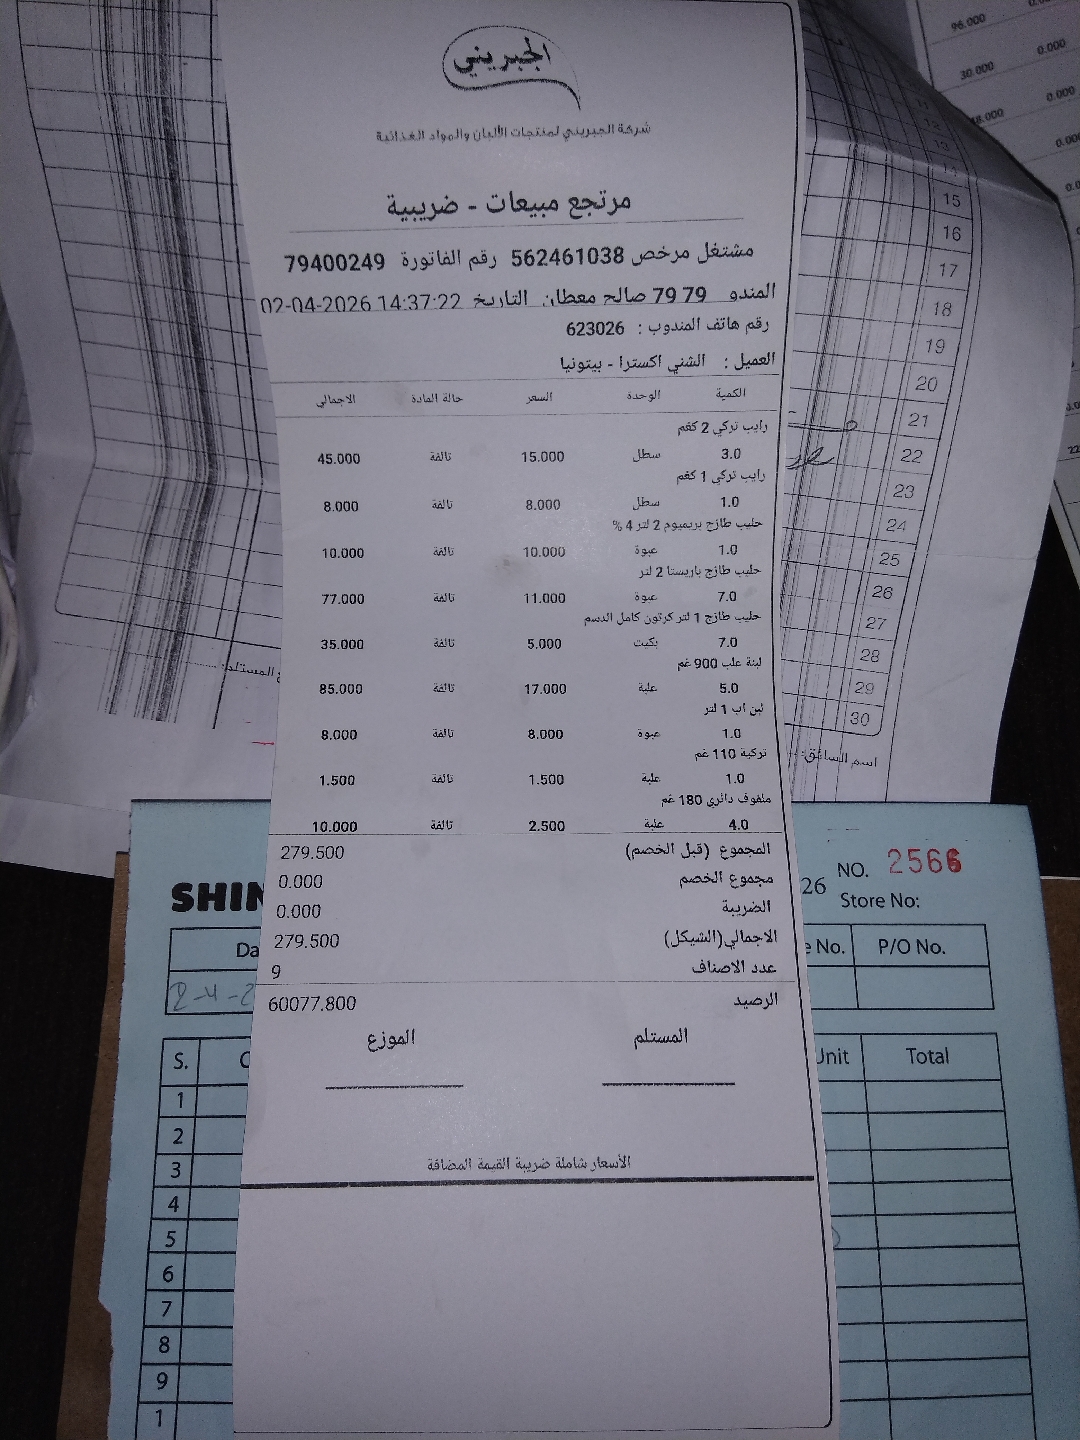 الجبريني
شركة الجبريني لمنتجات الألبان والمواد الغذائية
مرتجع مبيعات - ضريبية
مشتغل مرخص 562461038 رقم الفاتورة 79400249
المندو 79 79 صالح معطان التاريخ 02-04-2026 14:37:22
رقم هاتف المندوب : 623026
العميل : الشني اكسترا - بيتونيا
الكمية الوحدة السعر حالة المادة الاجمالي
رايب تركي 2 كغم
3.0 سطل 15.000 تالفة 45.000
رايب تركي 1 كغم
1.0 سطل 8.000 تالفة 8.000
حليب طازج بريميوم 2 لتر 4 %
1.0 عبوة 10.000 تالفة 10.000
حليب طازج باريستا 2 لتر
7.0 عبوة 11.000 تالفة 77.000
حليب طازج 1 لتر كرتون كامل الدسم
7.0 بكيت 5.000 تالفة 35.000
لبنة علب 900 غم
5.0 علبة 17.000 تالفة 85.000
لبن اب 1 لتر
1.0 عبوة 8.000 تالفة 8.000
تركية 110 غم
1.0 علبة 1.500 تالفة 1.500
ملفوف دائري 180 غم
4.0 علبة 2.500 تالفة 10.000
المجموع (قبل الخصم) 279.500
مجموع الخصم 0.000
الضريبة 0.000
الاجمالي(الشيكل) 279.500
عدد الاصناف 9
الرصيد 60077.800
المستلم الموزع
الأسعار شاملة ضريبة القيمة المضافة
96.000
30.000 0.000
0.000
15
16
17
18
19
20
21
22
23
24
25
26
27
28
29
30
اسم السائق:
المستلم:
SHIN
26
NO. 2566
Store No:
No. P/O No.
2-4-2
S. Unit Total
1
2
3
4
5
6
7
8
9
1